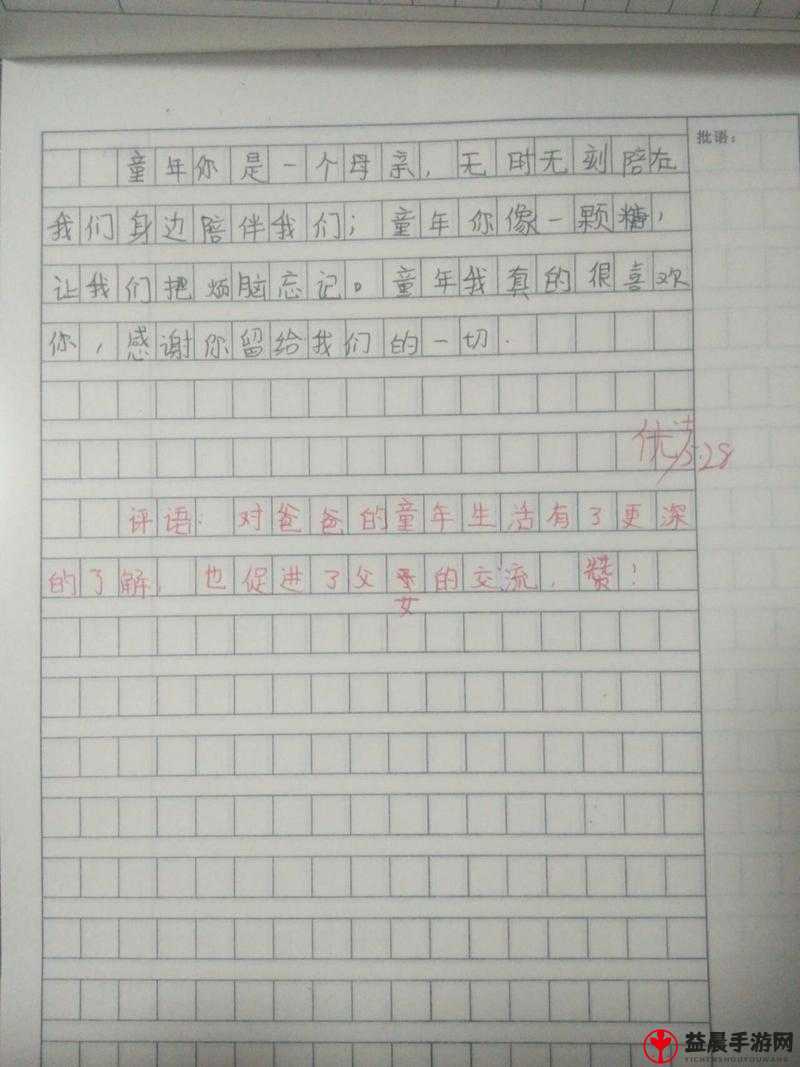 批语：
童年你是一个母亲，无时无刻陪在
我们身边陪伴我们；童年你像一颗糖，
让我们把烦脑忘记。童年我真的很喜欢
你，感谢你留给我们的一切.
优
5.28
评语：对爸爸的童年生活有了更深
的了解，也促进了父
女
的交流，赞！
益晨手游网
YICHENSHOUYOUWANG